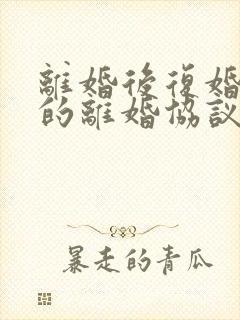 離婚後復婚
的離婚協議
暴走的青瓜